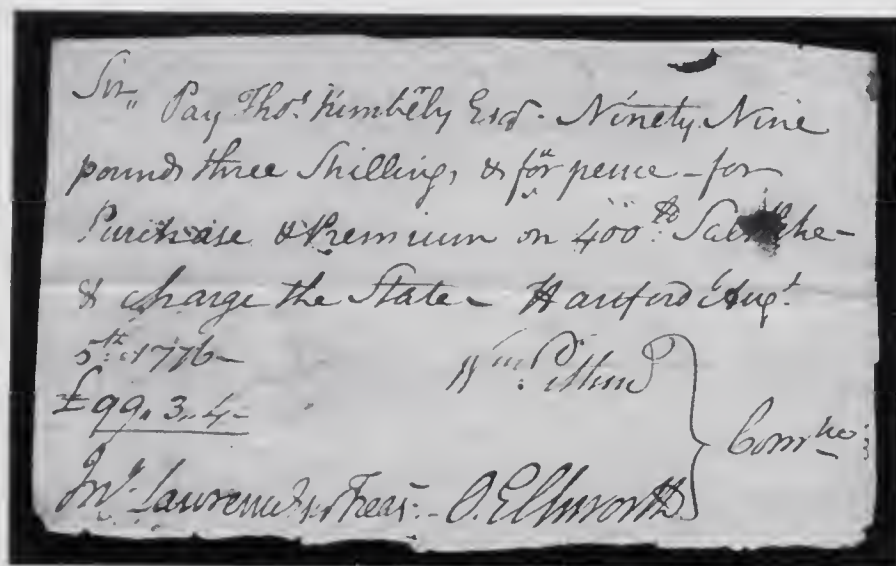 Sir,, Pay Thos. Kimberly Esqr. Ninety Nine
pounds three Shillings & four pence - for
Purchase & Premium on 400 lb Saltpetre -
& charge the State - Hartford Augt.
5th. 1776 -
£99,,3,,4 -
Wm. Pitkin
O. Ellsworth
Comtee
Jno. Lawrence Esqr Treasr. -